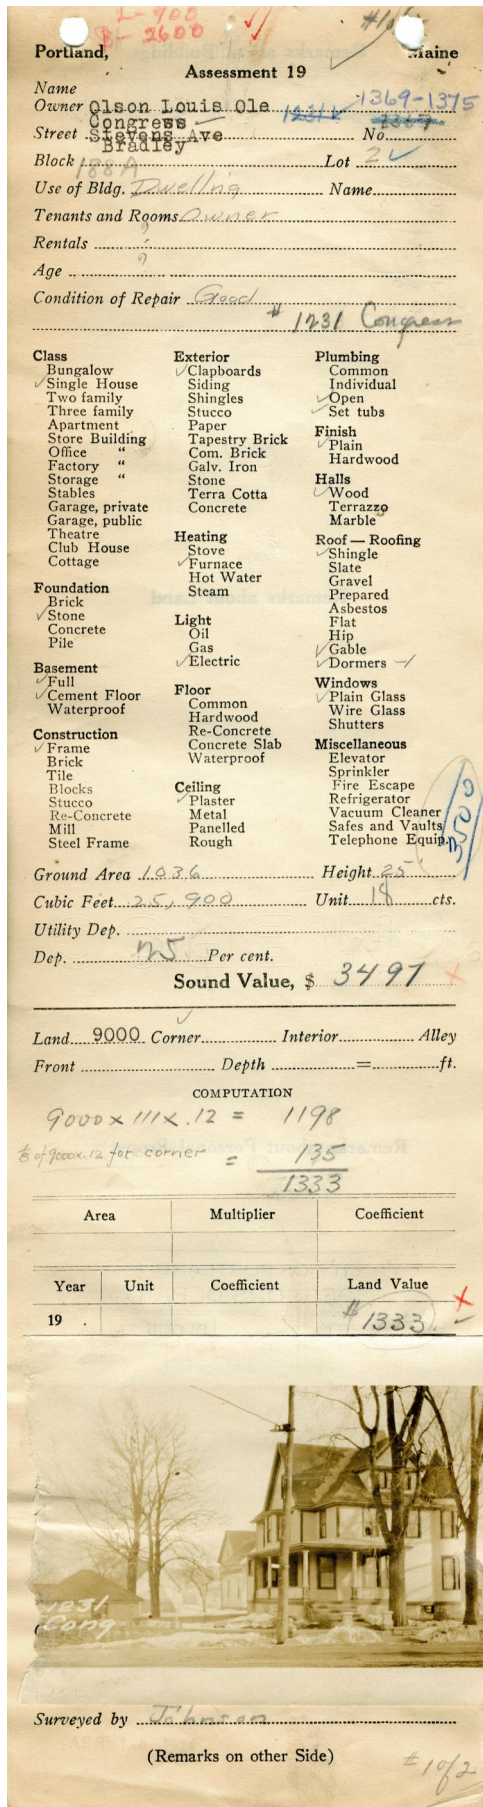 L- 900
B- 2600
Portland, Maine
Assessment 19
Name
Owner Olson Louis Ole 1231 1369-1375
Congress
Street Stevens Ave No.
Bradley
Block 188A Lot 2
Use of Bldg. Dwelling Name
Tenants and Rooms Owner
Rentals ?
Age ?
Condition of Repair Good
# 1231 Congress
Class
Bungalow
✓Single House
Two family
Three family
Apartment
Store Building
Office "
Factory "
Storage "
Stables
Garage, private
Garage, public
Theatre
Club House
Cottage
Foundation
Brick
✓Stone
Concrete
Pile
Basement
✓Full
✓Cement Floor
Waterproof
Construction
✓Frame
Brick
Tile
Blocks
Stucco
Re-Concrete
Mill
Steel Frame
Exterior
✓Clapboards
Siding
Shingles
Stucco
Paper
Tapestry Brick
Com. Brick
Galv. Iron
Stone
Terra Cotta
Concrete
Heating
Stove
✓Furnace
Hot Water
Steam
Light
Oil
Gas
✓Electric
Floor
Common
Hardwood
Re-Concrete
Concrete Slab
Waterproof
Ceiling
✓Plaster
Metal
Panelled
Rough
Plumbing
Common
Individual
✓Open
✓Set tubs
Finish
✓Plain
Hardwood
Halls
✓Wood
Terrazzo
Marble
Roof — Roofing
✓Shingle
Slate
Gravel
Prepared
Asbestos
Flat
Hip
✓Gable
✓Dormers -1
Windows
✓Plain Glass
Wire Glass
Shutters
Miscellaneous
Elevator
Sprinkler
Fire Escape
Refrigerator
Vacuum Cleaner
Safes and Vaults
Telephone Equip.
3500
Ground Area 1036 Height 25
Cubic Feet 25,900 Unit 18 cts.
Utility Dep.
Dep. 25 Per cent.
Sound Value, $ 3497 x
Land 9000 Corner ✓ Interior Alley
Front Depth = ft.
COMPUTATION
9000 x 111 x .12 = 1198
of 9000x.12 for corner = 135
1333
Area Multiplier Coefficient
Year Unit Coefficient Land Value
19 . $ 1333 x ✓
1231
Cong
Surveyed by Johnson
(Remarks on other Side)
# 1 of 2